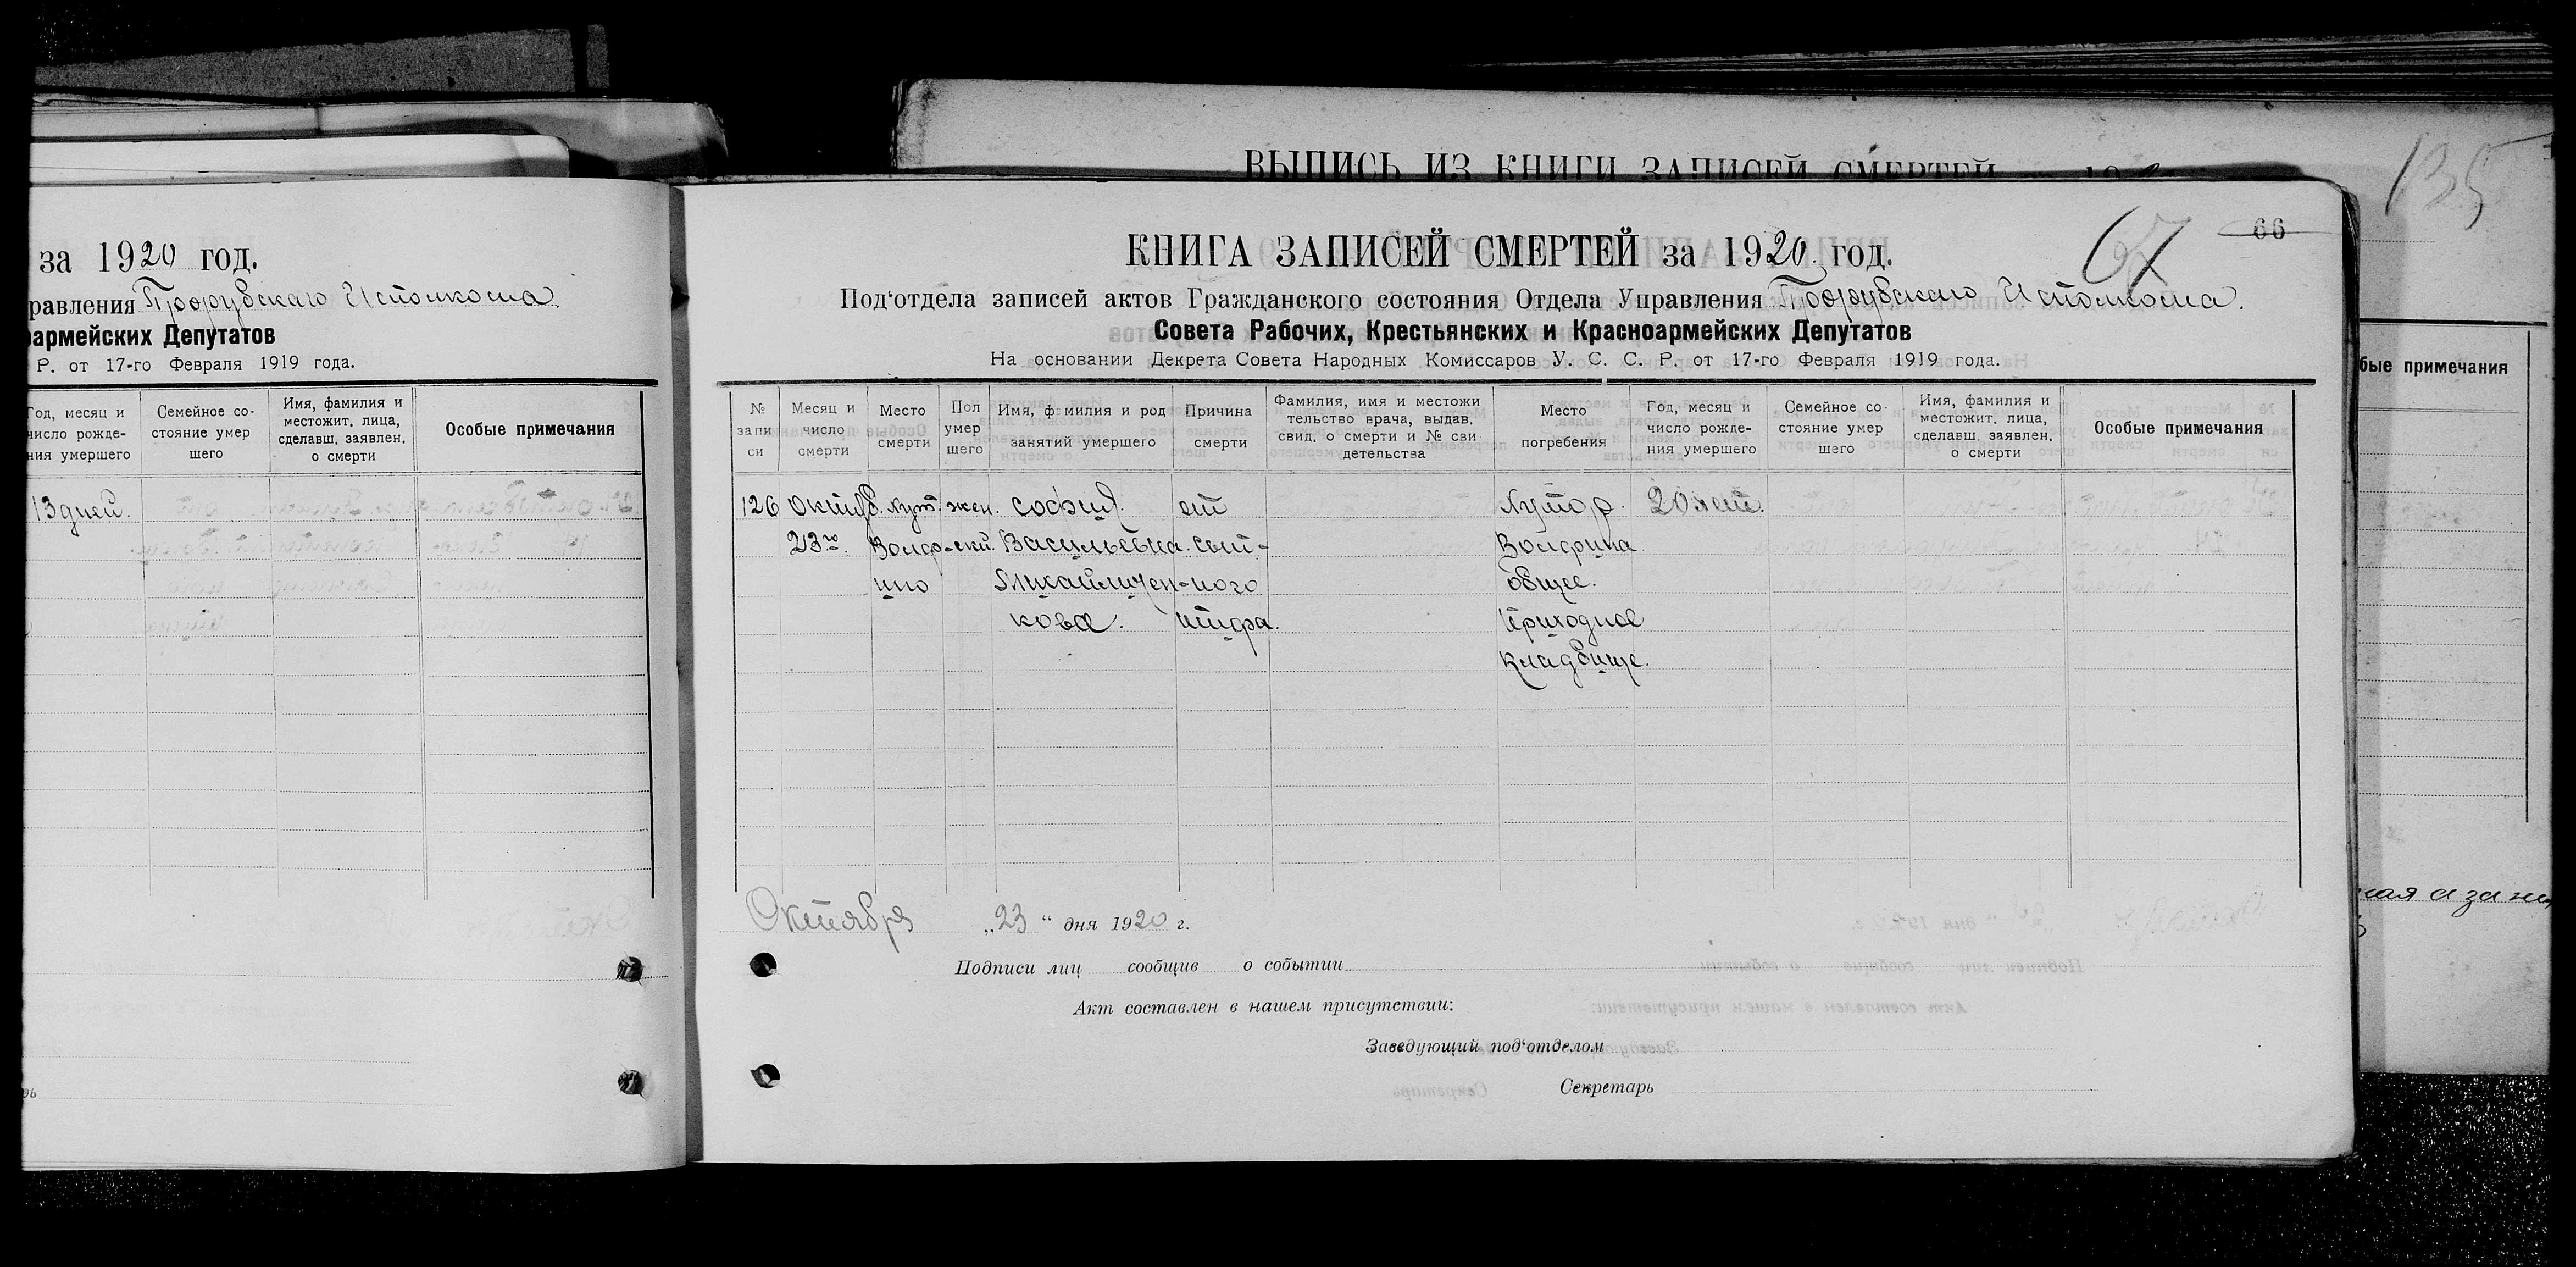 ВЫПИСЬ ИЗ КНИГИ ЗАПИСЕЙ СМЕРТЕЙ
135
за 1920 год.
равления Исполкома
оармейских Депутатов
Р. от 17-го Февраля 1919 года.
Год, месяц и число рожде- ния умершего
Семейное со- стояние умер шего
Имя, фамилия и местожит. лица, сделавш. заявлен. о смерти
Особые примечания
13 дней.
66
67
КНИГА ЗАПИСЕЙ СМЕРТЕЙ за 1920 год.
Под'отдела записей актов Гражданского состояния Отдела Управления Исполкома.
Совета Рабочих, Крестьянских и Красноармейских Депутатов
На основании Декрета Совета Народных Комиссаров У. С. С. Р. от 17-го Февраля 1919 года.
№ запи си
Месяц и число смерти
Место смерти
Пол умер шего
Имя, ф милия и род занятий умершего
Причина смерти
Фамилия, имя и местожи тельство врача, выдав. свид. о смерти и № сви детельства
Место погребения
Год, месяц и число рожде- ния умершего
Семейное со- стояние умер шего
Имя, фамилия и местожит. лица, сделавш. заявлен. о смерти
Особые примечания
126 Октяб. хут. жен. София от Хутор 20 лет.
23го Васильевна сып-
Михайличен- ного общее
кова. тифа. приходное
кладбище.
Октября „23“ дня 1920 г.
Подписи лиц сообщив о событии
Акт составлен в нашем присутствии:
Заведующий под'отделом
Секретарь
бые примечания